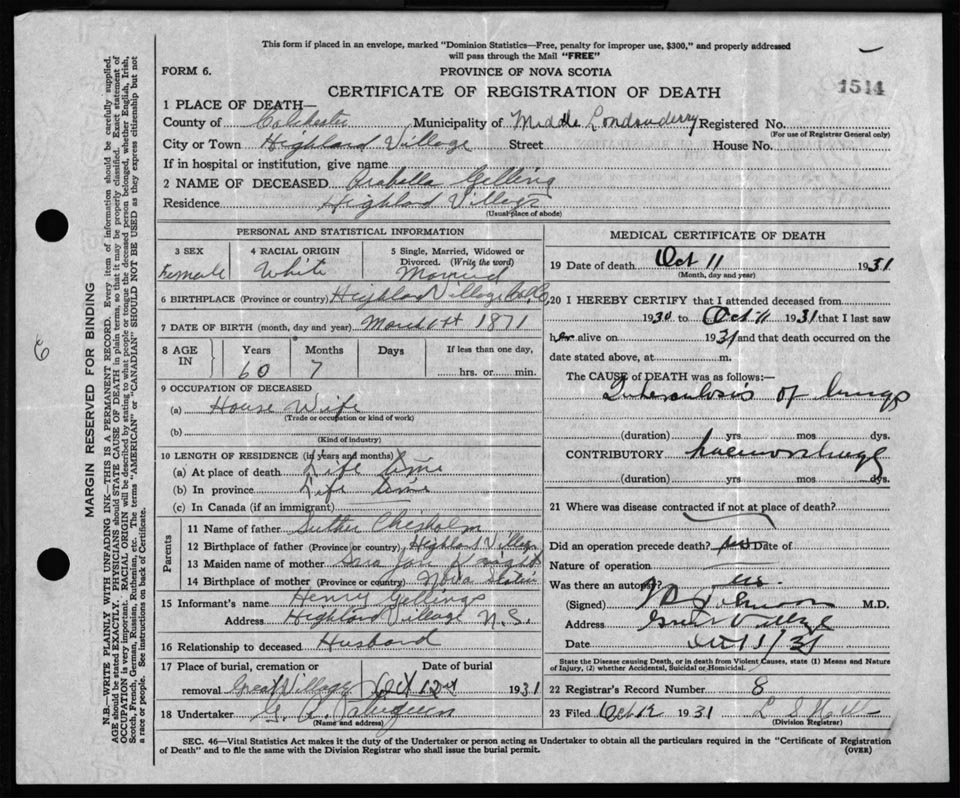 This form if placed in an envelope, marked "Dominion Statistics—Free, penalty for improper use, $300," and properly addressed
will pass through the Mail "FREE"
FORM 6.
PROVINCE OF NOVA SCOTIA
CERTIFICATE OF REGISTRATION OF DEATH
1514
1 PLACE OF DEATH—
County of Colchester Municipality of Middle Londonderry Registered No.
(For use of Registrar General only)
City or Town Highland Village Street House No.
If in hospital or institution, give name
2 NAME OF DECEASED Arabella Gilling
Residence Highland Village
(Usual place of abode)
PERSONAL AND STATISTICAL INFORMATION
3 SEX
Female
4 RACIAL ORIGIN
White
5 Single, Married, Widowed or
Divorced. (Write the word)
Married
6 BIRTHPLACE (Province or country) Highland Village, Col. Co.
7 DATE OF BIRTH (month, day and year) March 1871
8 AGE
IN
Years Months Days If less than one day,
60 7 hrs. or min.
9 OCCUPATION OF DECEASED
(a) House Wife
(Trade or occupation or kind of work)
(b)
(Kind of industry)
10 LENGTH OF RESIDENCE (in years and months)
(a) At place of death Life time
(b) In province Life time
(c) In Canada (if an immigrant)
Parents
11 Name of father Luther Chisholm
12 Birthplace of father (Province or country) Highland Village
13 Maiden name of mother Sara Jane
14 Birthplace of mother (Province or country) Nova Scotia
15 Informant's name Henry Gillings
Address Highland Village N.S.
16 Relationship to deceased Husband
17 Place of burial, cremation or Date of burial
removal Great Village Oct 12 1931
18 Undertaker
(Name and address)
MEDICAL CERTIFICATE OF DEATH
19 Date of death Oct 11 1931
(Month, day and year)
20 I HEREBY CERTIFY that I attended deceased from
1930 to Oct 11 1931 that I last saw
her alive on 1931 and that death occurred on the
date stated above, at m.
The CAUSE of DEATH was as follows:—
Tuberculosis of lungs
(duration) yrs. mos dys.
CONTRIBUTORY haemorrhage
(duration) yrs. mos dys.
21 Where was disease contracted if not at place of death?
Did an operation precede death? no Date of
Nature of operation
Was there an autopsy? no.
(Signed) Johnson M.D.
Address Great Village
Date Oct 11/31
State the Disease causing Death, or in death from Violent Causes, state (1) Means and Nature
of Injury, (2) whether Accidental, Suicidal or Homicidal.
22 Registrar's Record Number 8
23 Filed Oct 12 1931 L S Hill
(Division Registrar)
SEC. 46—Vital Statistics Act makes it the duty of the Undertaker or person acting as Undertaker to obtain all the particulars required in the "Certificate of Registration
of Death" and to file the same with the Division Registrar who shall issue the burial permit.
(OVER)
6
MARGIN RESERVED FOR BINDING
N.B.—WRITE PLAINLY WITH UNFADING INK—THIS IS A PERMANENT RECORD. Every item of information should be carefully supplied.
AGE should be stated EXACTLY. PHYSICIANS should STATE CAUSE OF DEATH in plain terms, so that it may be properly classified. Exact statement of
OCCUPATION is very important. RACIAL ORIGIN will be described by stating to what people or tongue the deceased person belonged, whether English, Irish,
Scotch, French, German, Russian, Ruthenian, etc. The terms "AMERICAN" or "CANADIAN" SHOULD NOT BE USED as they express citizenship but not
a race or people. See instructions on back of Certificate.